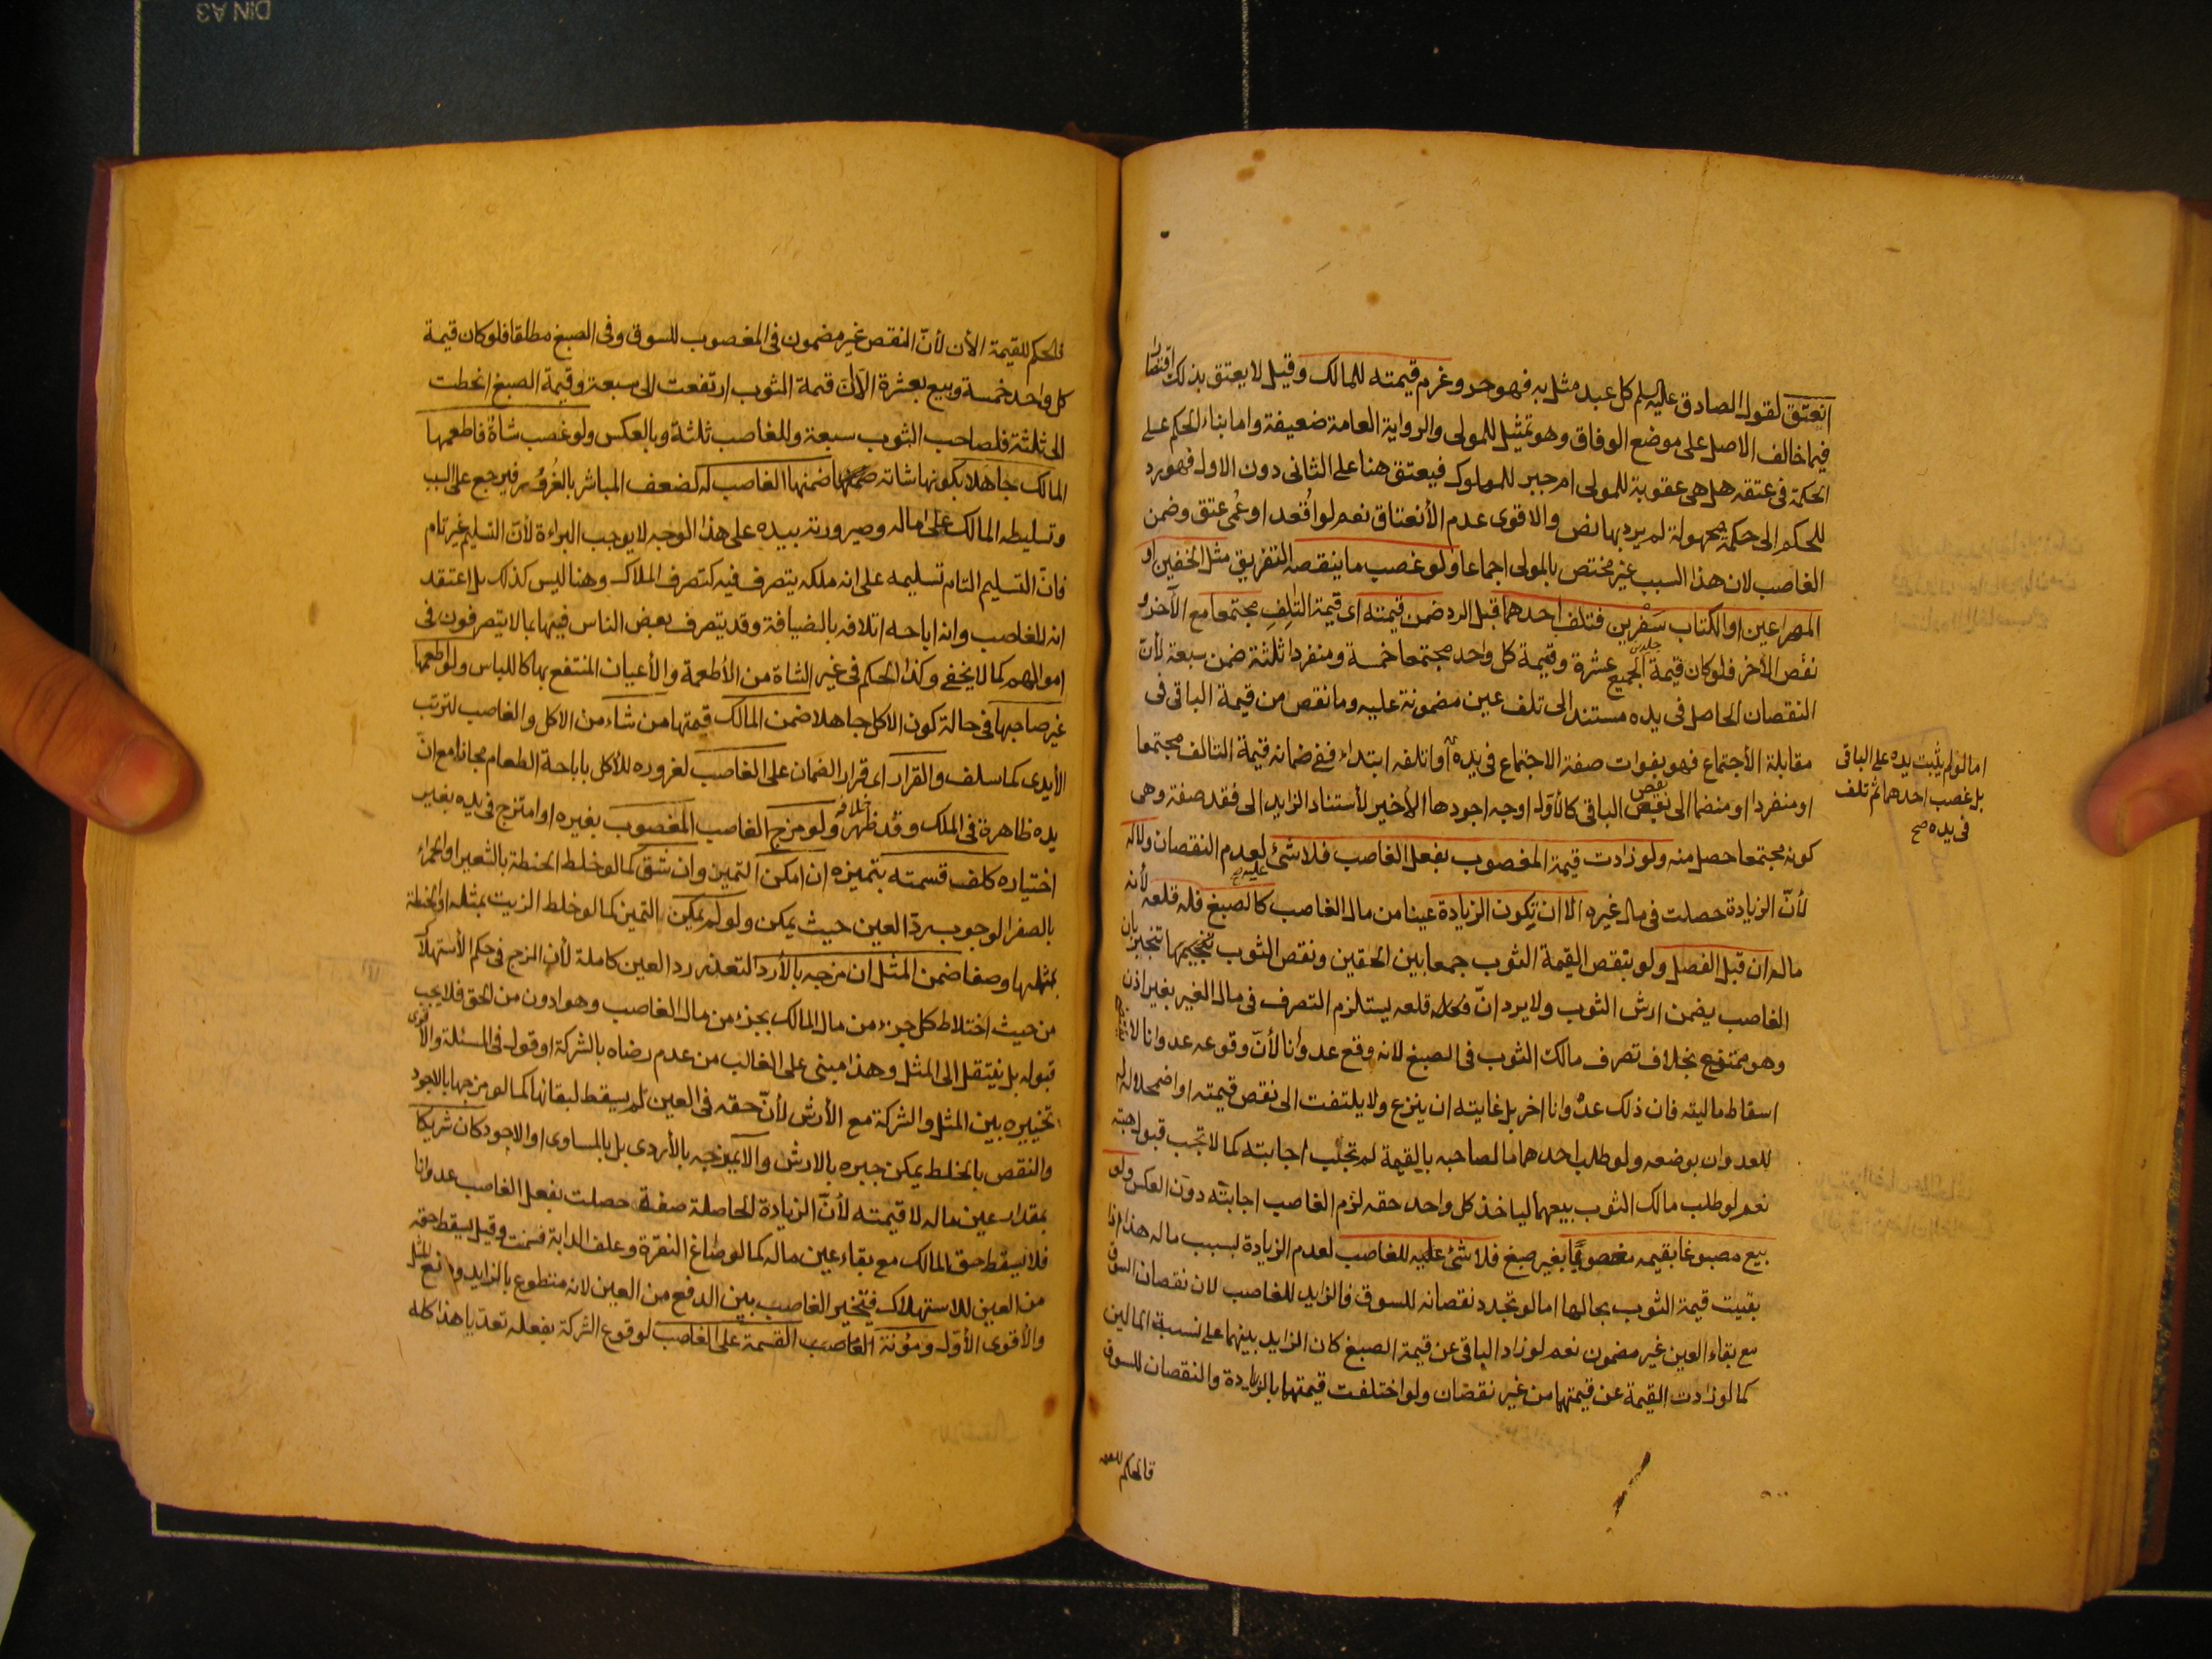 انعتق لقول الصادق عليه السلم كل عبد مثل به فهو حر وغرم قيمته للمالك وقيل لا يعتق بذلك اقتصارا
فيما خالف الاصل على موضع الوفاق وهو تمثيل المولى والرواية العامة ضعيفة واما بناء الحكم على
الحكمة فى عتقه هل هى عقوبة للمولى ام جبر للمملوك فيعتق هنا على الثانى دون الاول فهو رد
للحكم الى حكمة مجهولة لم يرد بها نص والاقوى عدم الأنعتاق نعم لو اقعد او عمى عتق وضمن
الغاصب لان هذا السبب غير مختص بالمولى اجماعا ولو غصب ما ينقصه التفريق مثل الخفين او
المصراعين او الكتاب سفرين فتلف احدهما قبل الرد ضمن قيمته اى قيمة التالف مجتمعا مع الآخر و
نقص الآخر فلو كان قيمة الجميع عشرة وقيمة كل واحد مجتمعا خمسة ومنفردا ثلثة ضمن سبعة لأنّ
النقصان الحاصل فى يده مستند الى تلف عين مضمونة عليه وما نقص من قيمة الباقى فى
مقابلة الأجتماع فهو بفوات صفة الاجتماع فى يده او اتلفه ابتداء ففى ضمانه قيمة التالف مجتمعا
اما لو لم يثبت يده على الباقى
بل غصب احدهما ثم تلف
فى يده صح
او منفردا او منضما الى نقص الباقى كالأول اوجه اجودها الأخير لأستناد الزايد الى فقد صفة وهى
كونه مجتمعا حصل منه ولو زادت قيمة المغصوب بفعل الغاصب فلا شئ عليه صح لعدم النقصان ولا له
لأنّ الزيادة حصلت فى مال غيره الا ان تكون الزيادة عينا من مال الغاصب كالصبغ فله قلعه لأنه
ماله ان قبل الفصل ولو بنقص القيمة الثوب جمعا بين الحقين ونقص الثوب ينجبر بان
الغاصب يضمن ارش الثوب ولا يرد انّ قلعه يستلزم التصرف فى مال الغير بغير اذن
وهو ممتنع بخلاف تصرف مالك الثوب فى الصبغ لانه وقع عدوانا لأنّ وقوعه عدوانا لا يقتضى
اسقاط ماليته فان ذلك عدوانا اخر بل غايته ان ينزع ولا يلتفت الى نقص قيمته او اضمحلاله
للعدوان بوضعه ولو طلب احدهما ما لصاحبه بالقيمة لم تجب اجابته كما لا تجب قبول هبته
نعم لو طلب مالك الثوب بيعهما لياخذ كل واحد حقه لزم الغاصب اجابته دون العكس ولو
بيع مصبوغا بقيمه مغصوبا بغير صبغ فلا شئ عليه للغاصب لعدم الزيادة بسبب ماله هذا اذا
بقيت قيمة الثوب بحالها اما لو تجدد نقصانه للسوق فالزايد للغاصب لان نقصان السوق
مع بقاء العين غير مضمون نعم لو زاد الباقى عن قيمة الصبغ كان الزايد بينهما على نسبة المالين
كما لو زادت القيمة عن قيمتهما من غير نقصان ولو اختلفت قيمتهما بالزيادة والنقصان للسوق
فالحكم للقيمة
فالحكم للقيمة الأن لأنّ النقص غير مضمون فى المغصوب للسوق وفى الصبغ مطلقا فلو كان قيمة
كل واحد خمسة وبيع بعشرة الا ان قيمة الثوب ارتفعت الى سبعة وقيمة الصبغ انحطت
الى ثلثة فلصاحب الثوب سبعة وللغاصب ثلثة وبالعكس ولو غصب شاة فاطعمها
المالك جاهلا بكونها شاته ضمنها الغاصب له لضعف المباشر بالغرور فيرجع على السبب
وتسليطه المالك على ماله وصيرورته بيده على هذا الوجه لا يوجب البراءة لأنّ التسليم غير تام
فانّ التسليم التام تسليمه على انه ملكه يتصرف فيه كتصرف الملاك وهنا ليس كذلك بل اعتقد
انه للغاصب وانه اباحه اتلافه بالضيافة وقد يتصرف بعض الناس فيها بما لا يتصرفون فى
اموالهم كما لا يخفى وكذا الحكم فى غير الشاة من الأطعمة والأعيان المنتفع بها كاللباس ولو اطعمها
غير صاحبها فى حالة كون الاكل جاهلا ضمن المالك قيمتها من شاء من الاكل والغاصب لترتب
الأيدى كما سلف والقرار اى قرار الضمان على الغاصب لغروره للأكل باباحة الطعام مجانا مع انّ
يده ظاهرة فى الملك وقد ظهر خلافه ولو مزج الغاصب المغصوب بغيره او امتزج فى يده بغير
اختياره كلف قسمته بتميزه ان امكن التميز وان شق كما لو خلط الحنطة بالشعير او الحمراء
بالصفرا لوجوب ردّ العين حيث يمكن ولو لم يمكن التميز كما لو خلط الزيت بمثله او الحنطة
بمثلها وصفا ضمن المثل ان مزجه بالأردا لتعذر رد العين كاملة لأن المزج فى حكم الأستهلاك
من حيث اختلاط كل جزء من مال المالك بجزء من مال الغاصب وهو ادون من الحق فلا يجب
قبوله بل ينتقل الى المثل وهذا مبنى على الغالب من عدم رضاه بالشركة او قول فى المسئلة والأقوى
تخييره بين المثل والشركة مع الأرش لأنّ حقه فى العين لم يسقط لبقائها كما لو مزجها بالاجود
والنقص بالخلط يمكن جبره بالارش والا يمزجه بالأردى بل بالمساوى او الاجود كان شريكا
بمقدار عين ماله لا قيمته لأنّ الزيادة الحاصلة صفة حصلت بفعل الغاصب عدوانا
فلا يسقط حق المالك مع بقاء عين ماله كما لو صاغ النقرة وعلف الدابة فسمنت وقيل يسقط حقه
من العين للاستهلاك فيتخير الغاصب بين الدفع من العين لانه متطوع بالزايد و دفع المثل
والأقوى الأول ومؤنة القسمة على الغاصب لوقوع الشركة بفعله تعديا هذا كله